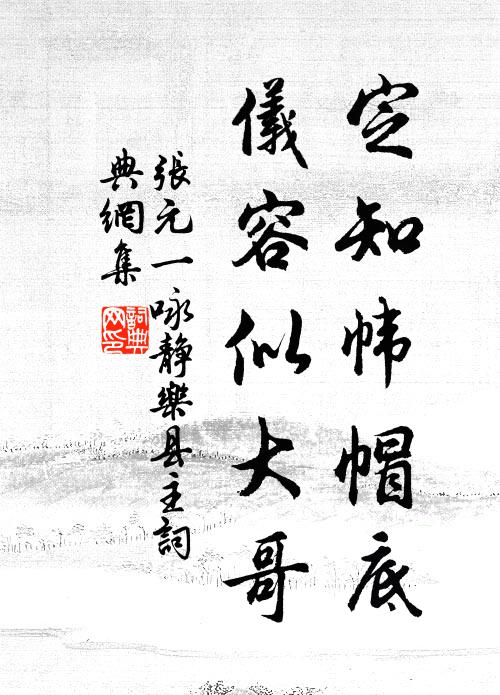 定知帏帽底
儀容似大哥
張元一咏靜樂县主詞
典網集
詞典
网印